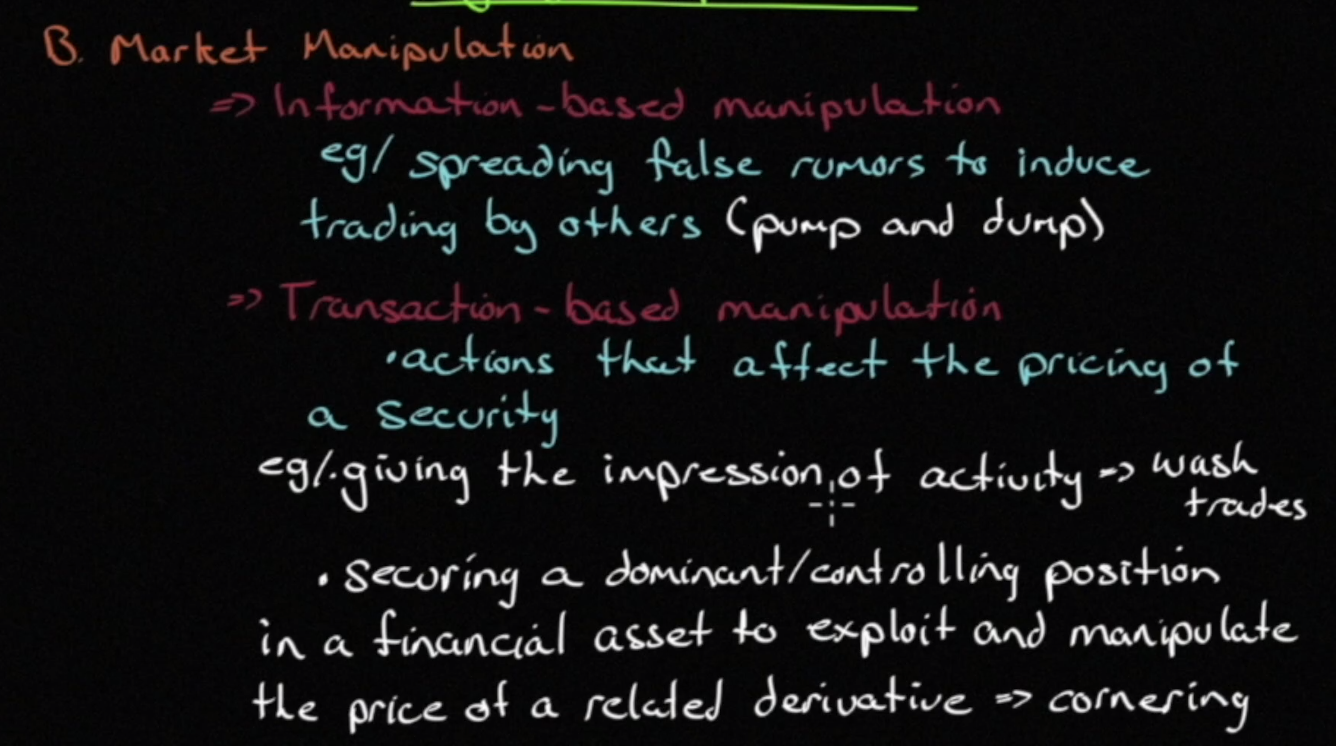 B. Market Manipulation
=> Information-based manipulation
eg/ spreading false rumors to induce
trading by others (pump and dump)
=> Transaction-based manipulation
• actions that affect the pricing of
a security
eg/• giving the impression of activity => wash
trades
• securing a dominant/controlling position
in a financial asset to exploit and manipulate
the price of a related derivative => cornering